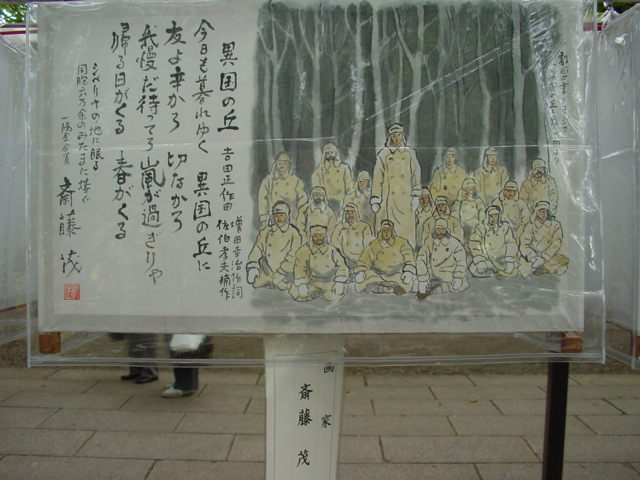 異国の丘
増田幸治作詞
吉田正作曲
佐伯孝夫補作
今日も暮れゆく 異国の丘に
友よ辛かろ 切なかろ
我慢だ待ってろ 嵐が過ぎりゃ
帰る日がくる 春がくる
シベリヤの地に眠る
同胞六万余のみたまに捧ぐ
斎藤 茂
画家
斎藤 茂